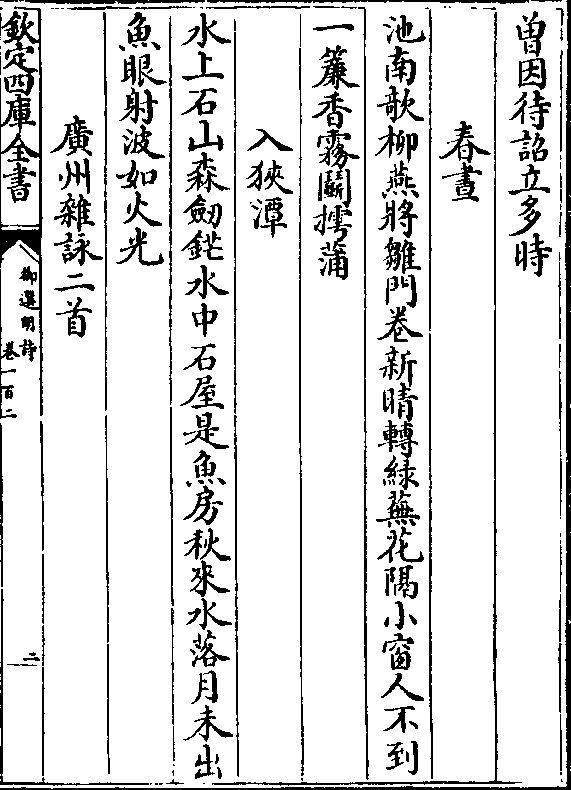 曽因待詔立多時
春晝
池南欹柳燕將雛門巷新晴轉緑蕪花隔小窗人不到
一簾香霧鬭摴蒲
入狹潭
水上石山森劒鋩水中石屋是魚房秋來水落月未出
魚眼射波如火光
廣州雜詠二首
欽定四庫全書
御選明詩
卷一百二
二